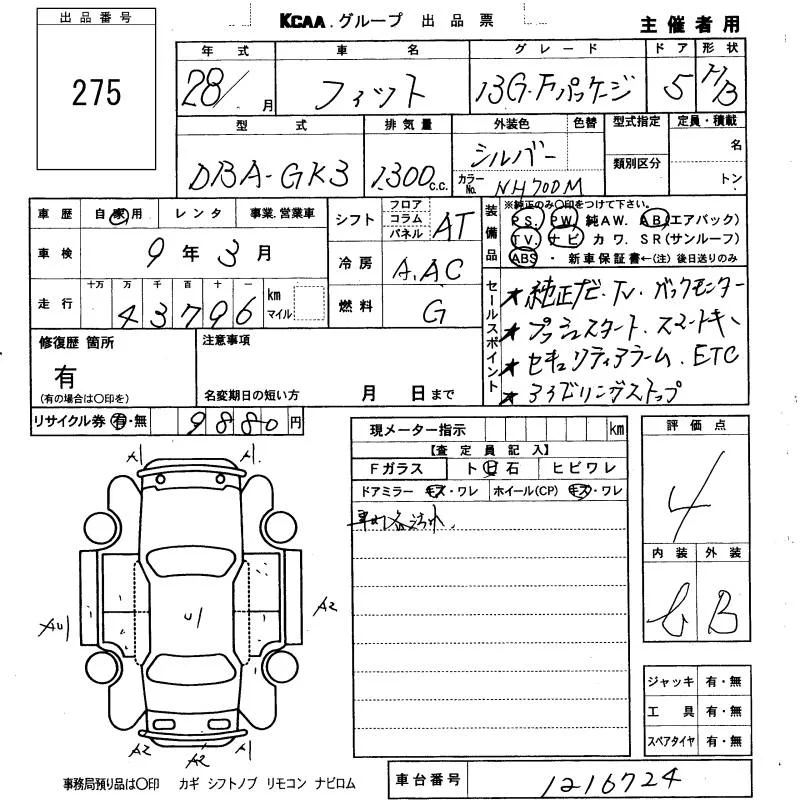 出品番号
275
KCAA.グループ 出品票
主催者用
年式 車名 グレード ドア 形状
28/ 月 フィット 13G・Fパッケージ 5 H/B
型式 排気量 外装色 色替 型式指定 定員・積載
DBA-GK3 1300 c.c. シルバー 類別区分 名
カラーNo. NH700M トン
車歴 自家用 レンタ 事業.営業車
車検 9年3月
走行 十万 万 千 百 十 一 km マイル
43796
シフト フロア コラム パネル AT
冷房 A.AC
燃料 G
装備品 ※純正のみ○印をつけて下さい。
PS. PW 純AW. AB(エアバック)
TV. ナビ カワ. SR(サンルーフ)
ABS ・ 新車保証書←(注) 後日送りのみ
セールスポイント
★純正ナビ.TV.バックモニター
★プッシュスタート.スマートキー
★セキュリティアラーム.ETC
★アイドリングストップ
修復歴 箇所
有
(有の場合は○印を)
注意事項
名変期日の短い方 月 日まで
リサイクル券 有・無 9880円
現メーター指示 km
【査定員記入】
Fガラス ト ビ 石 ヒビワレ
ドアミラー キズ・ワレ ホイール(CP) キズ・ワレ
評価点
4
内装 外装
B
A1 A1
U1
AU1 A2
A2 A2 A1
ジャッキ 有・無
工具 有・無
スペアタイヤ 有・無
事務局預り品は○印 カギ シフトノブ リモコン ナビロム
車台番号 1216724